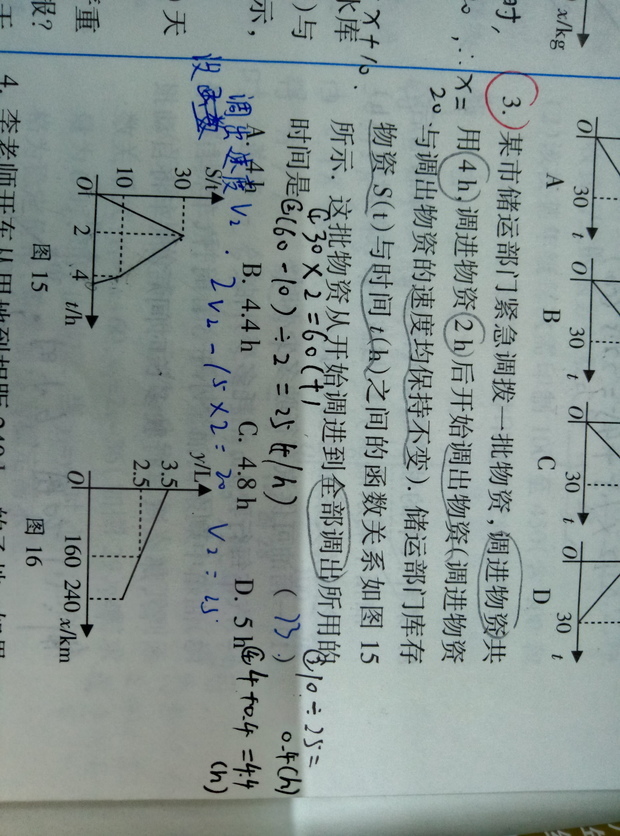 x/kg
O 30 t
A
O 30 t
B
O 30 t
C
O 30 t
D
3. 某市储运部门紧急调拨一批物资,调进物资共
用 4 h,调进物资 2 h 后开始调出物资(调进物资
与调出物资的速度均保持不变). 储运部门库存
物资 S(t)与时间 t(h)之间的函数关系如图 15
所示、这批物资从开始调进到全部调出所用的
时间是 ( B )
A. 4 h B. 4.4 h C. 4.8 h D. 5 h
①30×2=60(t)
②(60-10)÷2=25(t/h)
③10÷25=
0.4(h)
④4+0.4=4.4
(h)
调出速度V₂. 2V₂-15×2=20 V₂=25
S/t
30
10
O 2 4 t/h
图 15
y/L
3.5
2.5
O 160 240 x/km
图 16
时,
∴x=
20
x+10.
水库
)与
示,
)天
重
报?
4. 李老师开车从甲地到相距 240